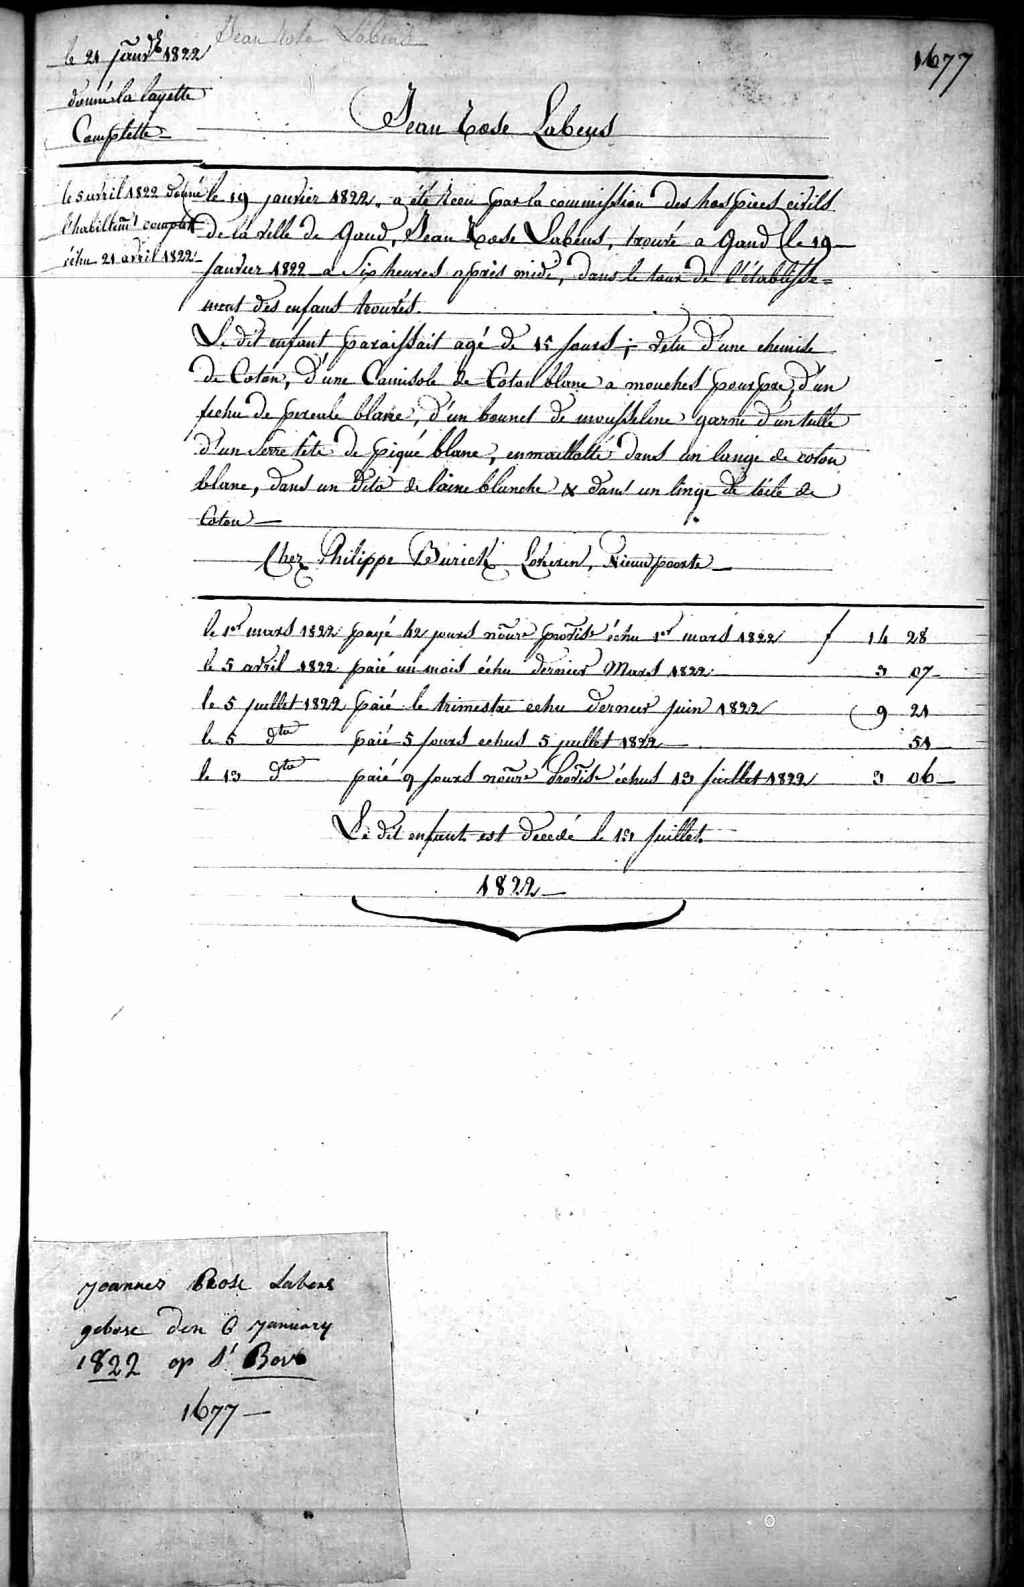 Jean Rose Labens
1677
le 21 janv. 1822
donné la layette
Complette
Jean Rose Labens
le 5 avril 1822 donné
l'habillemt complet
échu 21 avril 1822
le 19 janvier 1822, a été Recu par la commission des hospices civils
de la ville de Gand, Jean Rose Labens, trouvé a Gand le 19
Janvier 1822 a Six heures apris midi, dans le tour de l'établisse=
ment des enfans trouvés.
Le dit enfant paraissait agé de 15 Jours; vetu d'une chemise
de Coton, d'une Camisole de Coton blanc a mouches pourpre, d'un
fichu de percale blanc, d'un bonnet de mousseline garni d'un tulle
d'un Serre tête de piqué blanc, enmaillotté dans un lange de coton
blanc, dans un dito de laine blanche & dans un linge de toile de
Coton
Chez Philippe Burick Lokeren, Nieuwpoorte
le 1er mars 1822 payé 42 jours échu 1er mars 1822 f 14 28
le 5 avril 1822 paié un mois échu dernier Mars 1822 3 07
le 5 juillet 1822 paié le trimestre echu dernier juin 1822 9 21
le 5 dto paié 5 Jours echus 5 juillet 1822 51
le 13 dto paié 9 jours échus 13 juillet 1822 3 06
Le dit enfant est decedé le juillet
1822
Joannes Rose Labens
gebore den 6 January
1822 op St Bovo
1677